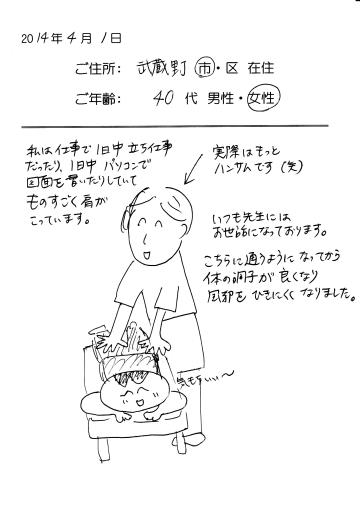 2014年4月1日
ご住所: 武蔵野 市・区 在住
ご年齢: 40 代 男性・女性
私は仕事で1日中立ち仕事
だったり、1日中パソコンで
図面を書いたりしていて
ものすごく肩が
こっています。
実際はもっと
ハンサムです(笑)
いつも先生には
お世話になっております。
こちらに通うようになってから
体の調子が良くなり
風邪をひきにくくなりました。
気もちいい〜